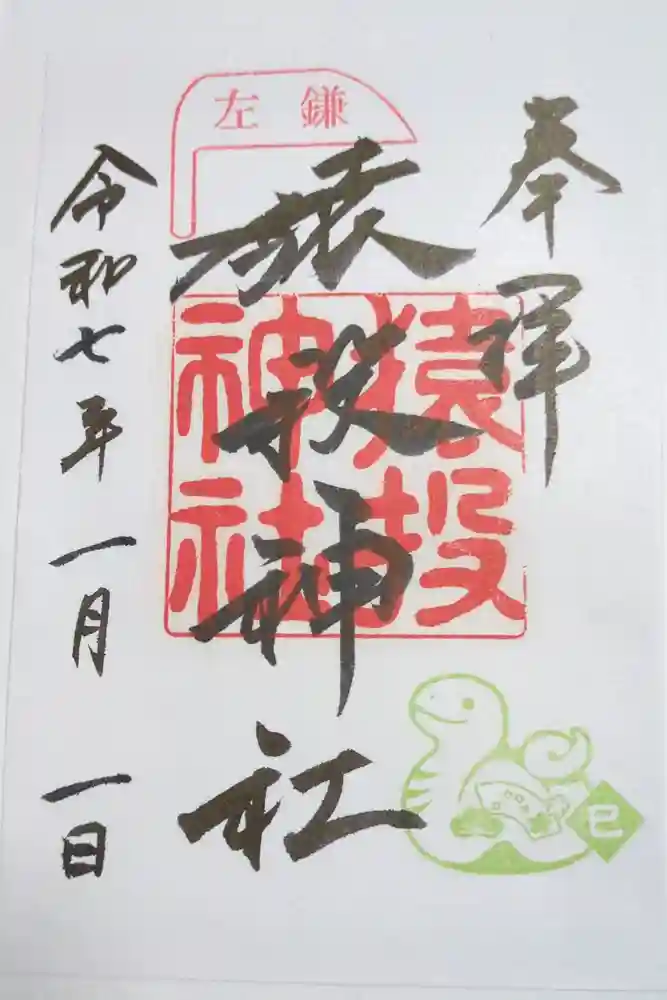 奉拝
左鎌
猿投神社
猿投
神社
巳
令和七年一月一日